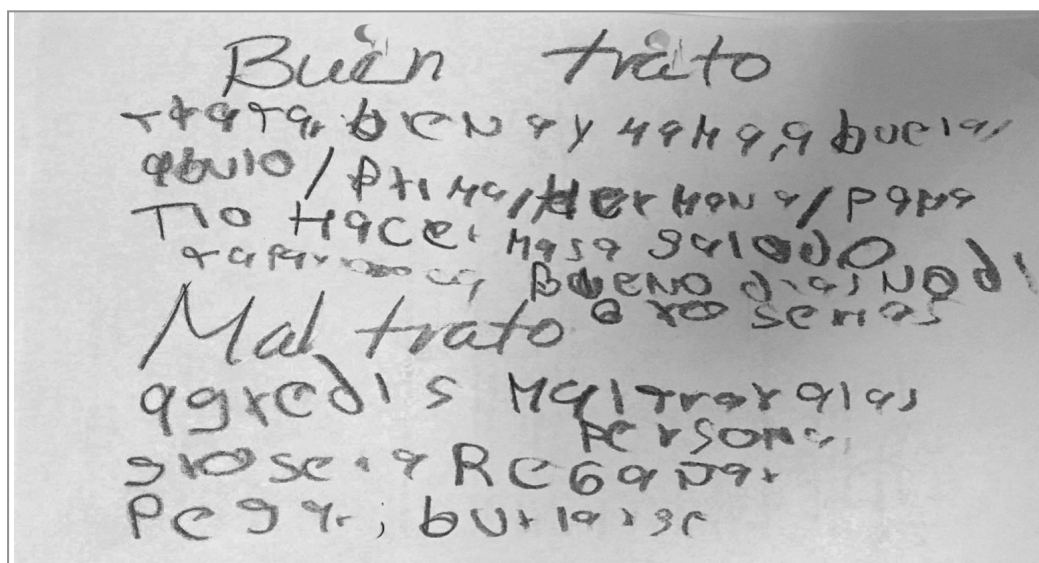 Buen trato
tratar bien a y mama, abuela,
abulo / Prima / Hermana / papa
Tio Hacer masa saludo
Bueno dias NO di
groserias
Mal trato
agredis Maltratar a las
persona,
grosera REGANar
Pegar; burlarse